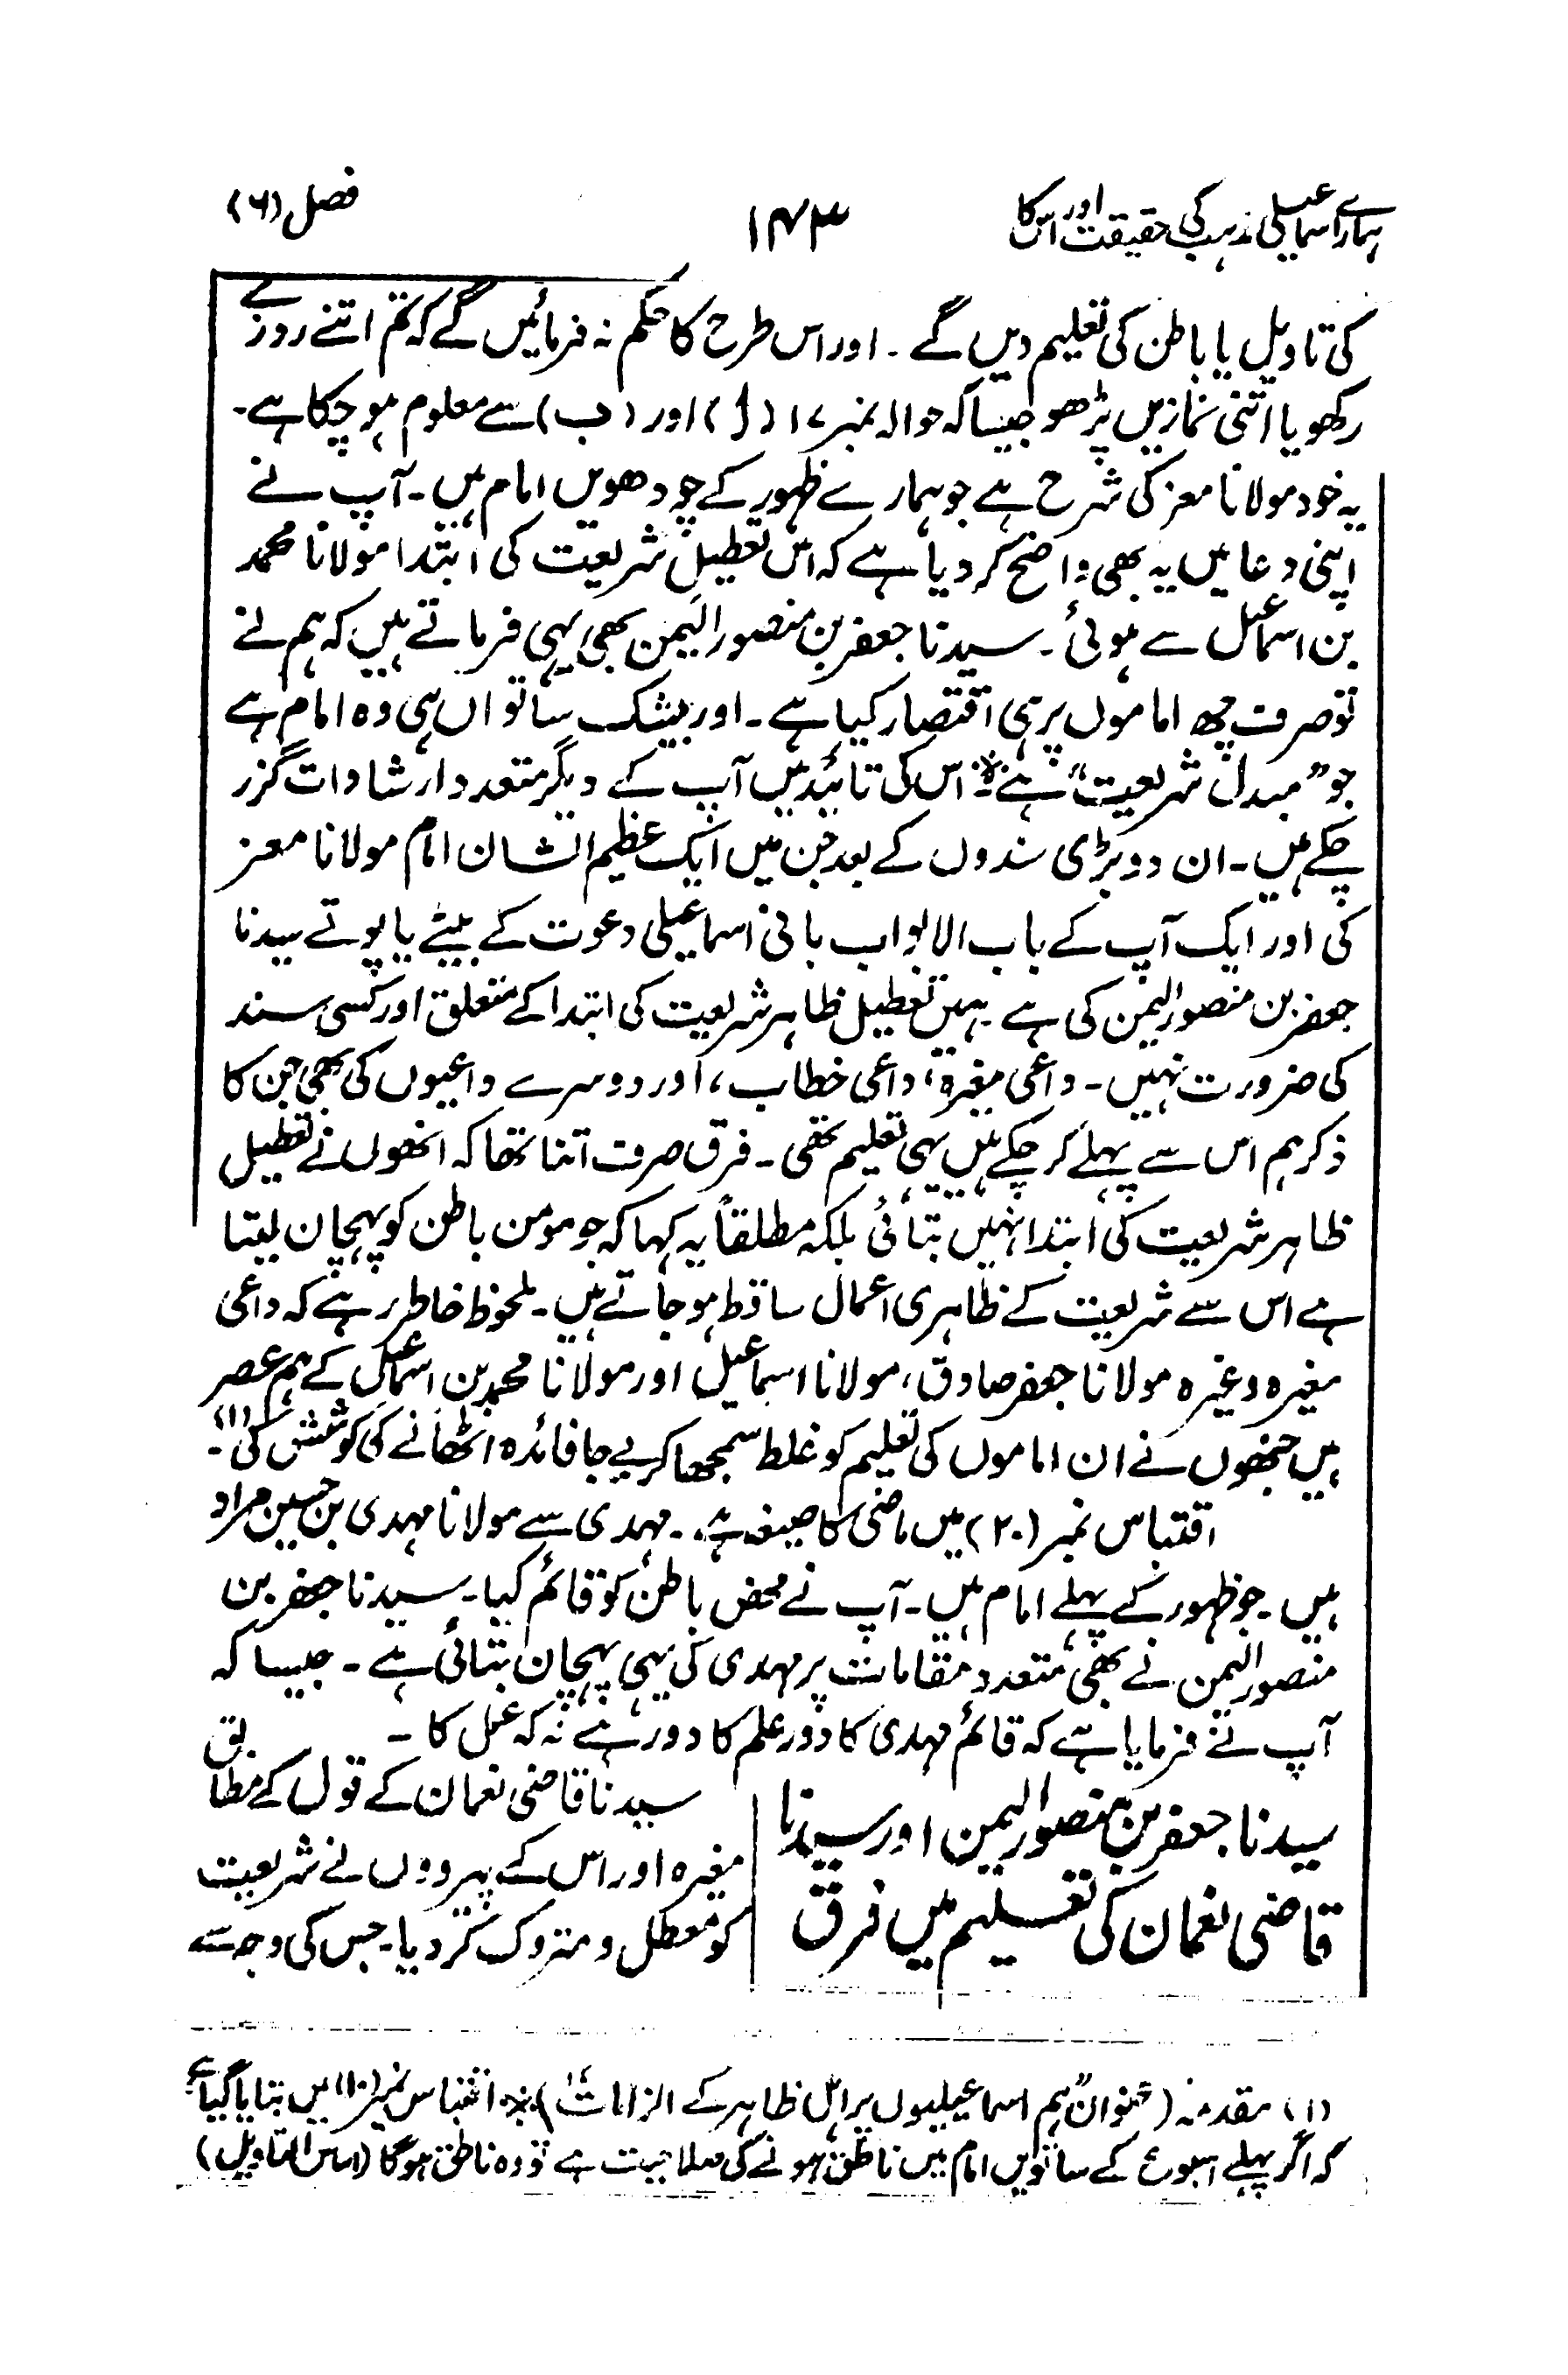 ہمارے اسماعیلی مذہب کی حقیقت اور اس کا
۱۴۳
فصل (۶)
کی تاویل یا باطن کی تعلیم دیں گے۔ اور اس طرح کا حکم نہ فرمائیں گے کہ تم اتنے روزے
رکھو یا اتنی نمازیں پڑھو جیسا کہ حوالہ نمبر ۱۷ (ا) اور (ب) سے معلوم ہو چکا ہے۔
یہ خود مولانا معز کی شرح ہے جو ہمارے ظہور کے چودھویں امام ہیں۔ آپ نے
اپنی دعا میں یہ بھی واضح کر دیا ہے کہ اس تعطیل شریعت کی ابتدا مولانا محمد
بن اسماعیل سے ہوئی۔ سیدنا جعفر بن منصور الیمن بھی یہی فرماتے ہیں کہ ہم نے
تو صرف چھ اماموں پر ہی اقتصار کیا ہے۔ اور بیشک ساتواں ہی وہ امام ہے
جو "مبدل شریعت" ہے اس کی تائید میں آپ کے دیگر متعدد ارشادات گزر
چکے ہیں۔ ان دو بڑی سندوں کے بعد جن میں ایک عظیم الشان امام مولانا معز
کی اور ایک آپ کے باب الابواب بانی اسماعیلی دعوت کے بیٹے یا پوتے سیدنا
جعفر بن منصور الیمن کی ہے ہمیں تعطیل ظاہر شریعت کی ابتدا کے متعلق اور کسی سند
کی ضرورت نہیں۔ داعی مغیرہ، داعی خطاب، اور دوسرے داعیوں کی بھی جن کا
ذکر ہم اس سے پہلے کر چکے ہیں یہی تعلیم تھی۔ فرق صرف اتنا تھا کہ انھوں نے تعطیل
ظاہر شریعت کی ابتدا نہیں بتائی بلکہ مطلقاً یہ کہا کہ جو مومن باطن کو پہچان لیتا
ہے اس سے شریعت کے ظاہری اعمال ساقط ہو جاتے ہیں۔ ملحوظ خاطر رہے کہ داعی
مغیرہ وغیرہ مولانا جعفر صادق، مولانا اسماعیل اور مولانا محمد بن اسماعیل کے ہم عصر
ہیں جنھوں نے ان اماموں کی تعلیم کو غلط سمجھا کر بے جا فائدہ اٹھانے کی کوشش کی (۱)۔
اقتباس نمبر (۲۰) میں ماضی کا صیغہ ہے۔ مہدی سے مولانا مہدی بن حسین مراد
ہیں۔ جو ظہور کے پہلے امام ہیں۔ آپ نے محض باطن کو قائم کیا۔ سیدنا جعفر بن
منصور الیمن نے بھی متعدد مقامات پر مہدی کی یہی پہچان بتائی ہے۔ جیسا کہ
آپ نے فرمایا ہے کہ قائم مہدی کا دور علم کا دور ہے نہ کہ عمل کا۔
سیدنا جعفر بن منصور الیمن اور سیدنا
قاضی نعمان کی تعلیم میں فرق
سیدنا قاضی نعمان کے قول کے مطابق
مغیرہ اور اس کے پیرووں نے شریعت
کو معطل و متروک کر دیا۔ جس کی وجہ سے
(۱) مقدمہ (عنوان "ہم اسماعیلیوں پر اہل ظاہر کے الزامات") اقتباس نمبر (۱۰) میں بتایا گیا ہے
کہ اگر پہلے اسبوع کے ساتویں امام میں ناطق ہونے کی صلاحیت ہے تو وہ ناطق ہوگا (اساس التاویل)